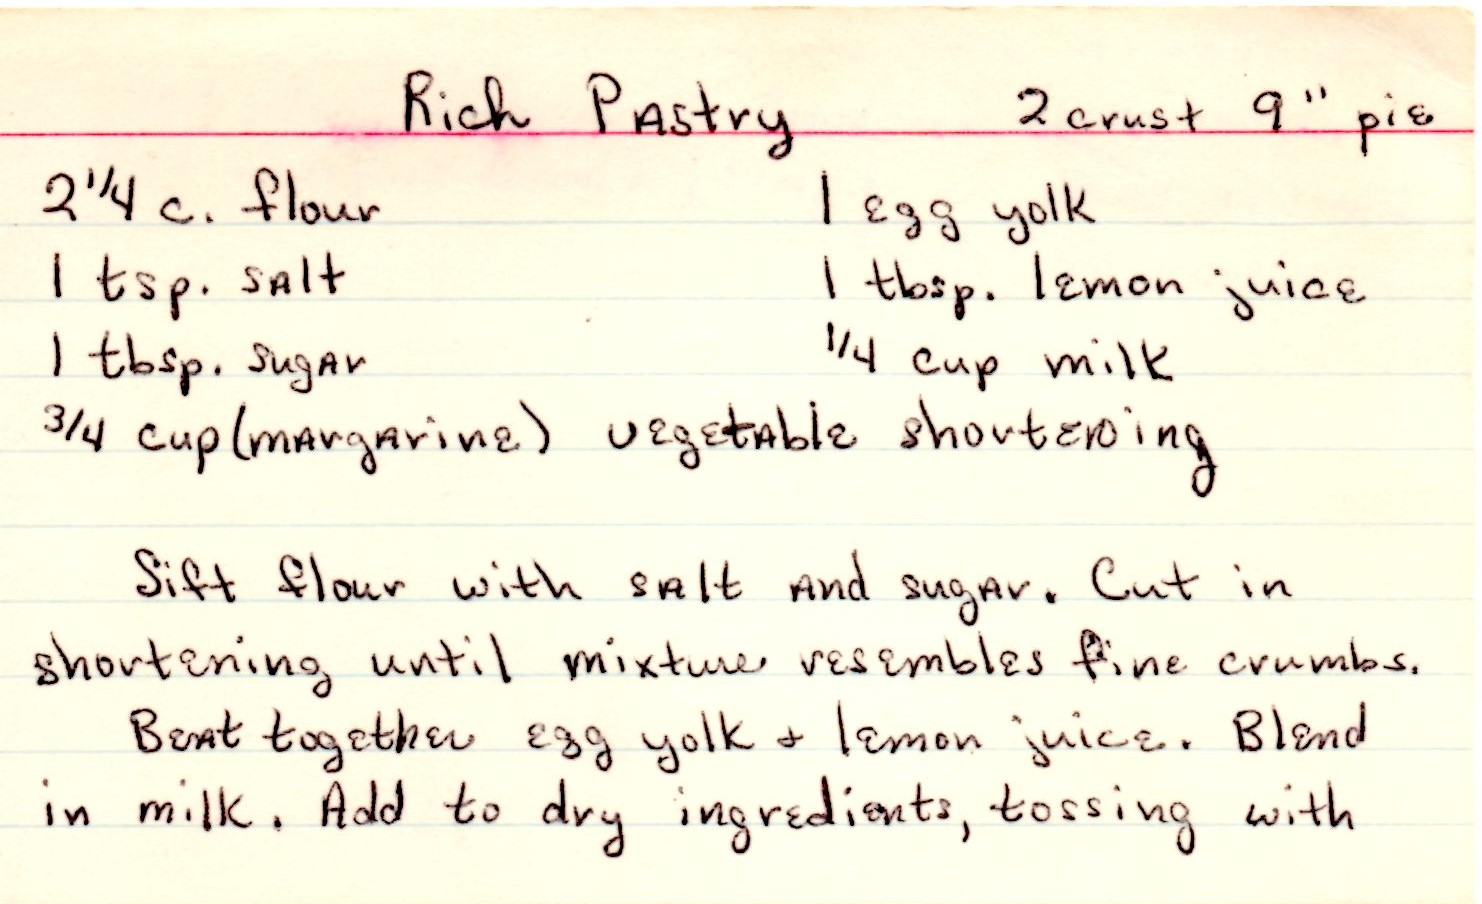 Rich Pastry 2 crust 9" pie
2 1/4 c. flour 1 egg yolk
1 tsp. salt 1 tbsp. lemon juice
1 tbsp. sugar 1/4 cup milk
3/4 cup (margarine) vegetable shortening
Sift flour with salt and sugar. Cut in
shortening until mixture resembles fine crumbs.
Beat together egg yolk & lemon juice. Blend
in milk. Add to dry ingredients, tossing with